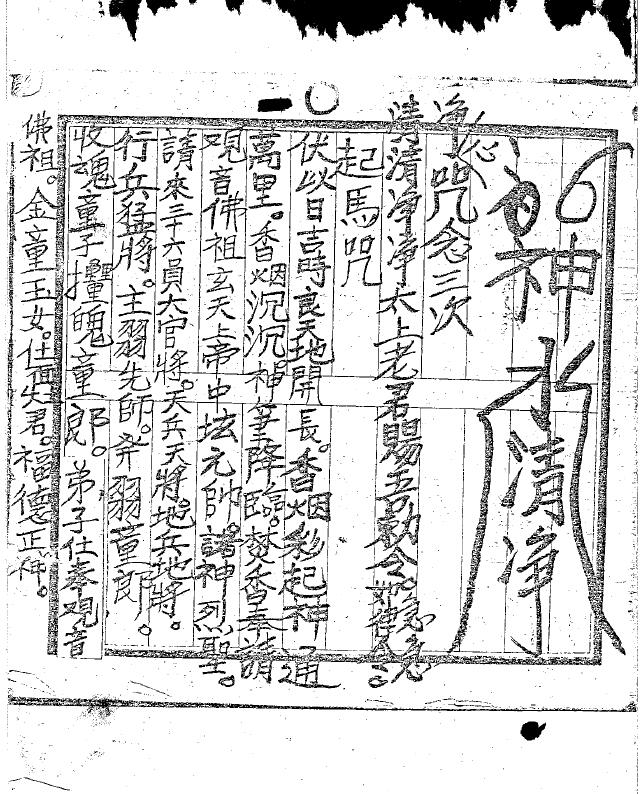 神水清净
净心咒念三次
清清净净太上老君賜吾勅令如神急急
起馬咒
伏以日吉時良天地開長。香烟彩起神通
萬里。香烟沉沉神筆降臨。焚香奉請
观音佛祖玄天上帝中坛元帅。諸神烈聖。
請來三十六員大官將。天兵天將。地兵地將。
行兵猛將。主翏先師。斧翏童郎。
收魂童子攝魄童郎。弟子仕奉观音
佛祖。金童玉女。仕面失君。福德正神。